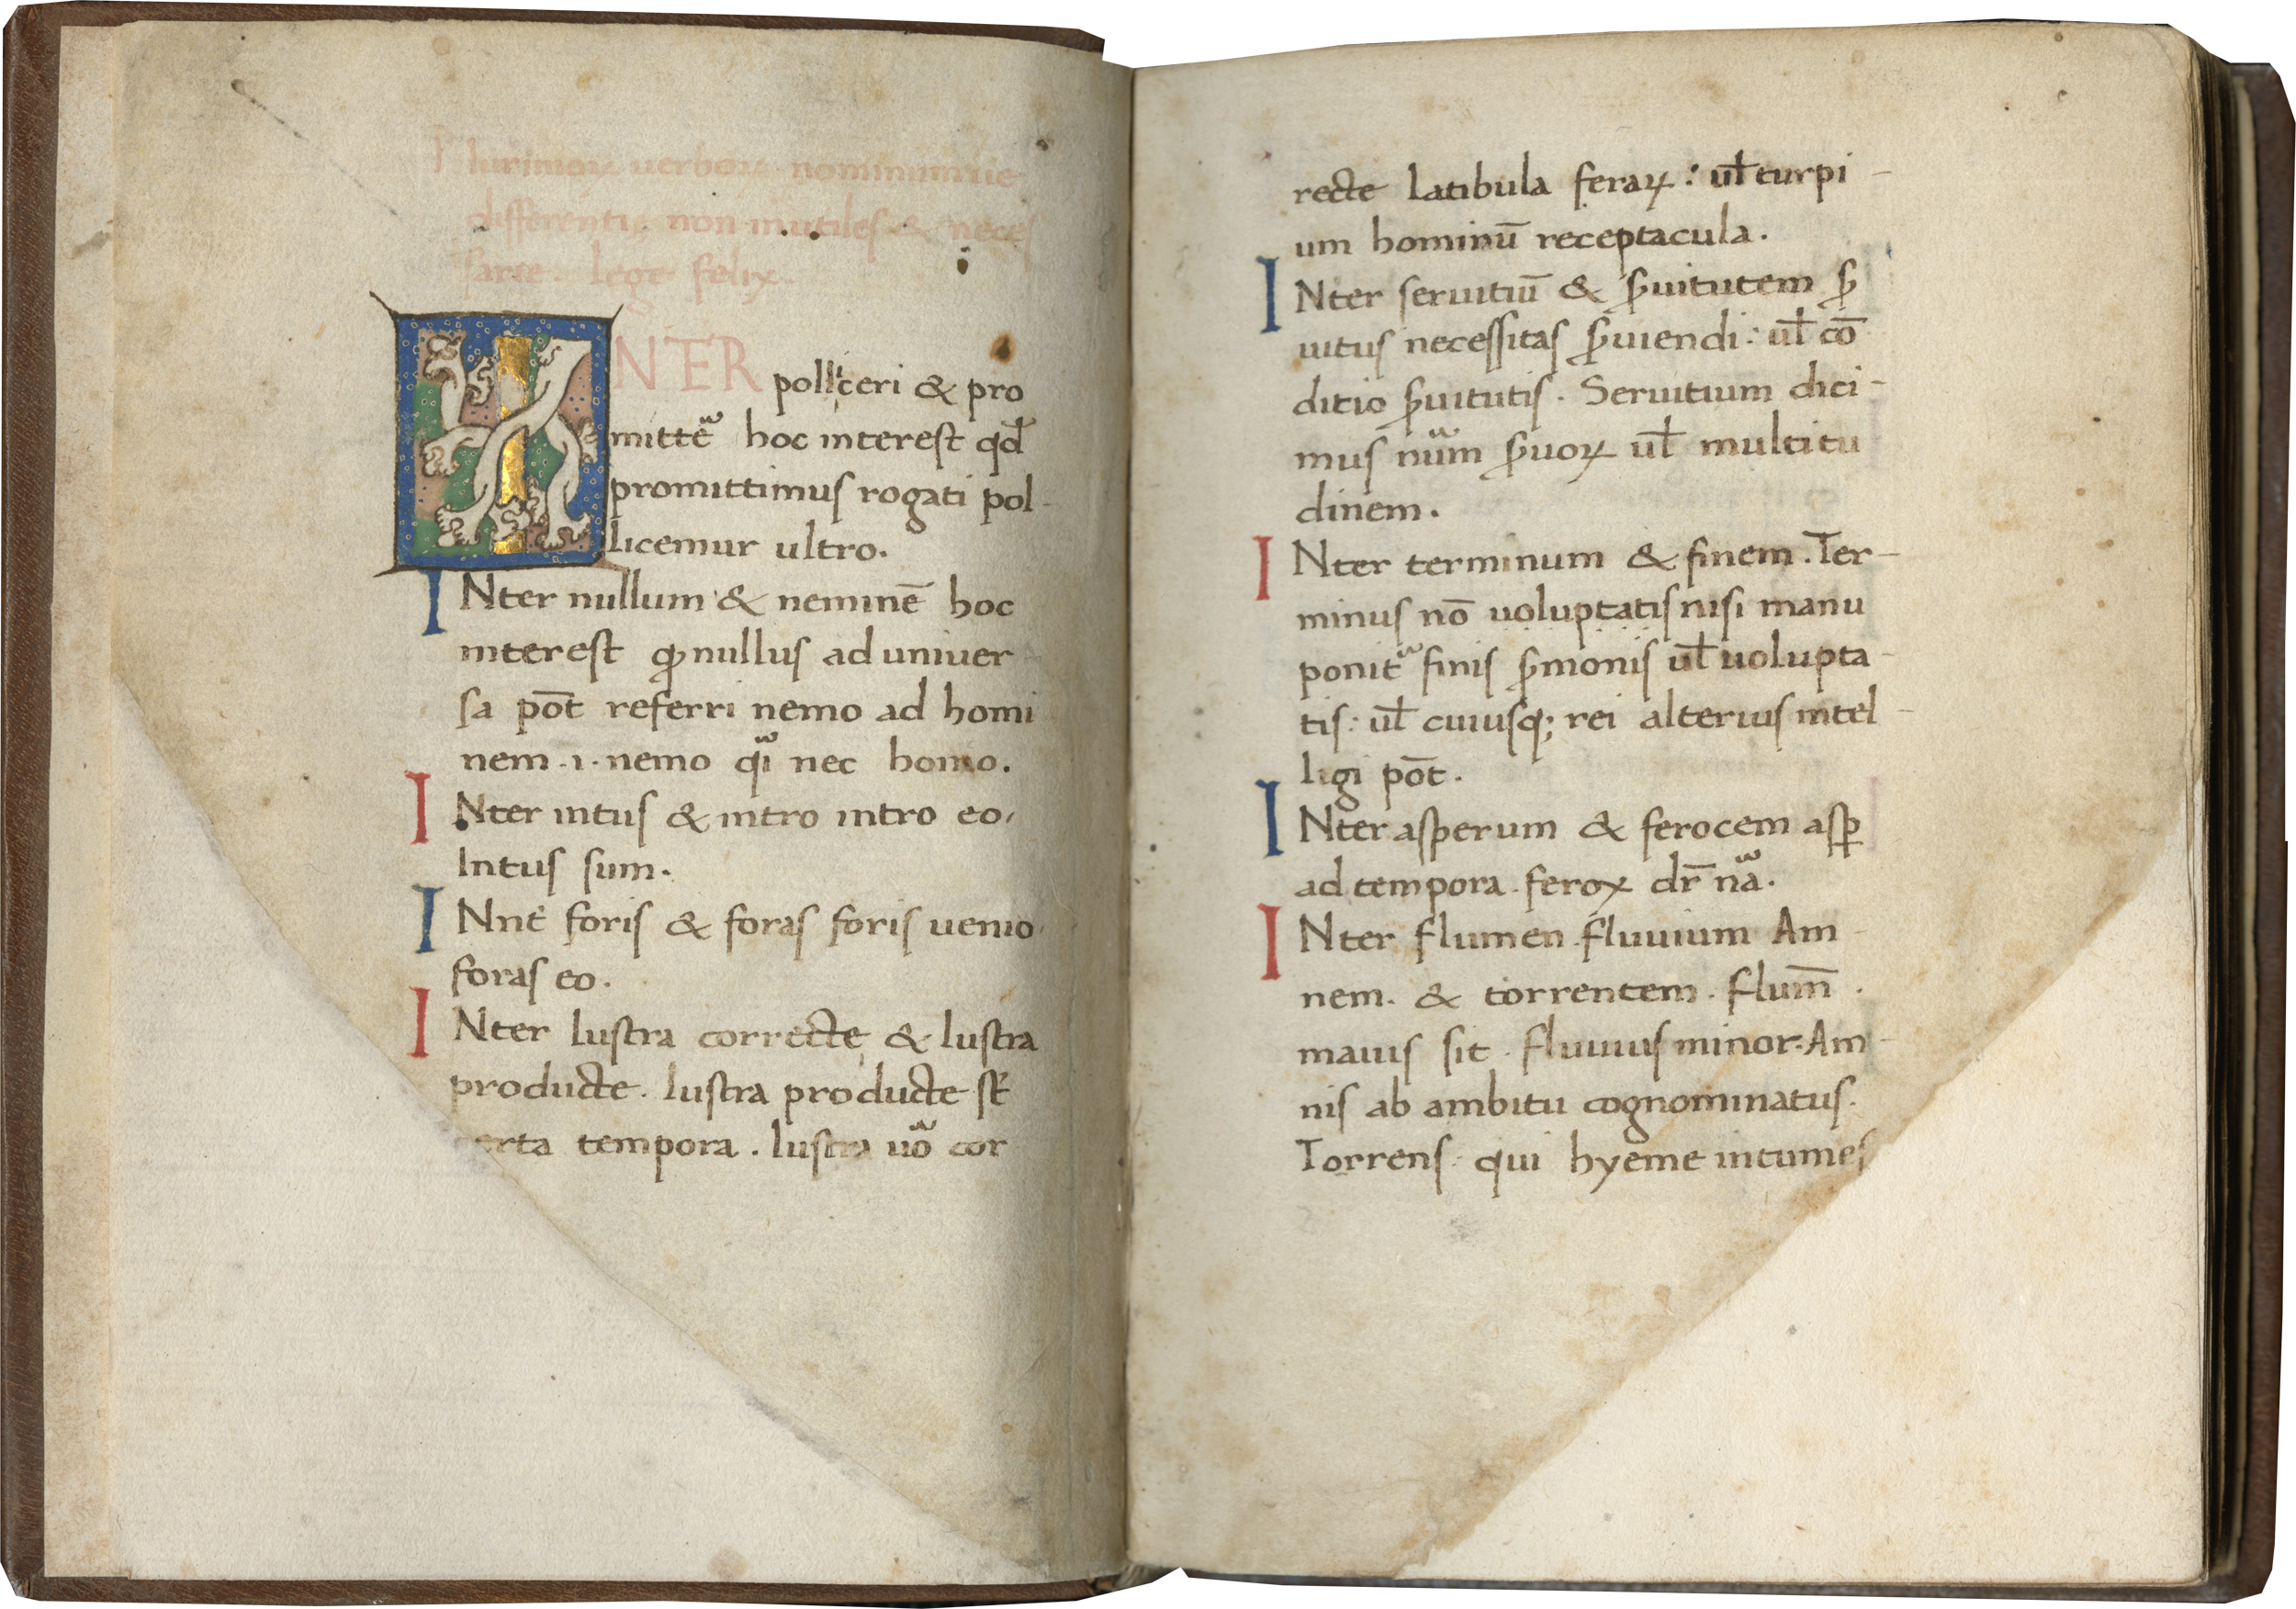 Plurimoꝝ uerboꝝ nominumue
differentię non inutiles & neces
sarie. lege felix.
INTER polliceri & pro
mittē hoc interest qđ
promittimus rogati pol-
licemur ultro.
INter nullum & neminē hoc
interest ꝙ nullus ad uniuer
sa pōt referri nemo ad homi
nem .i. nemo qͣi nec homo.
INter intus & intro intro eo,
Intus sum.
INnt̉ foris & foras foris uenio
foras eo.
INter lustra correcte & lustra
producte. lustra producte st̄
certa tempora. lustra uoᷓ cor
recte latibula feraꝝ: ul̄ turpi-
um hominū receptacula.
INter seruitiū & ẜuitutem ẜ
uitus necessitas ẜuiendi: ul̄ cō
ditio ẜuitutis. Seruitium dici-
mus nuᷓm ẜuoꝝ ul̄ multitu
dinem.
INter terminum & finem. Ter-
minus nō uoluptatis nisi manu
ponitᷓ finis ẜmonis ul̄ uolupta-
tis: ul̄ cuiusqꝫ rei alterius intel-
ligi pōt.
INter asperum & ferocem asꝑ
ad tempora. ferox dr̄ naᷓ.
INter flumen. fluuium Am-
nem. & torrentem. flum̄.
maius sit. fluuius minor. Am-
nis ab ambitu cognominatus.
Torrens. qui hyeme intumes